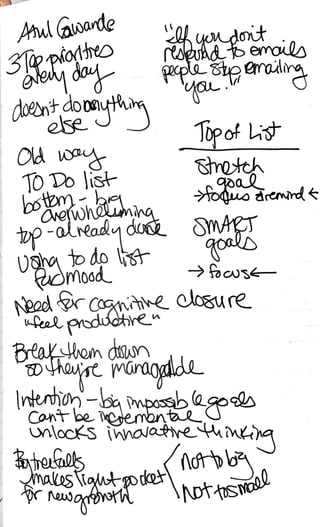 Atul Gawande
3 Top priorities
every day
doesn't do anything
else
Old way
TO DO list
bottom - big
overwhelming
top - already done
Using to do list
for mood
Need for cognitive closure
"feel productive"
Break them down
so they're manageable
Intention - big impossible goals
Can't be incremental
unlocks innovative thinking
Big tree falls
makes light pocket
for new growth
Not to big
Not to small
"If you don't
respond to emails
people stop emailing
you."
Top of List
Stretch
goal
→ focus remind ←
SMART
goals
→ focus ←